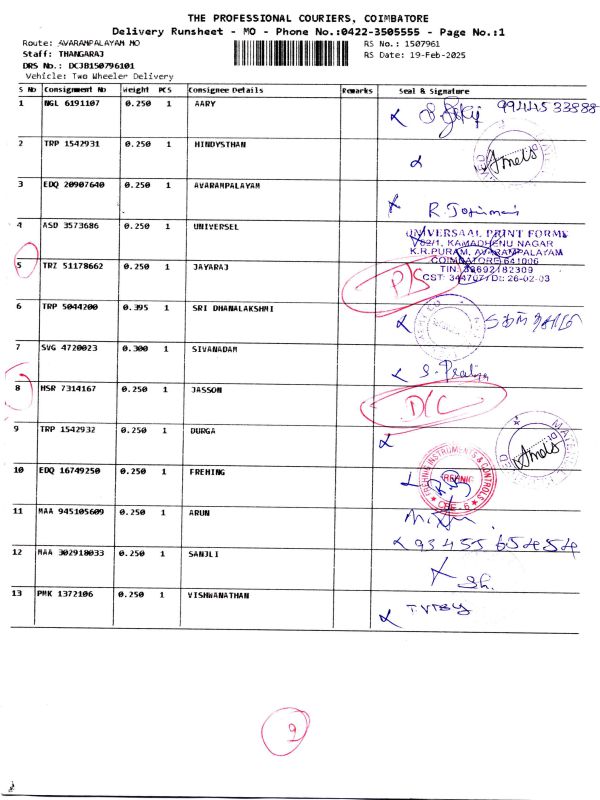 THE PROFESSIONAL COURIERS, COIMBATORE
Delivery Runsheet - MO - Phone No.:0422-3505555 - Page No.:1
Route: AVARAMPALAYAM MO RS No.: 1507961
Staff: THANGARAJ RS Date: 19-Feb-2025
DRS No.: DCJB150796101
Vehicle: Two Wheeler Delivery
S No Consignment No Weight PCS Consignee Details Remarks Seal & Signature
1 NGL 6191107 0.250 1 AARY 9944533888
2 TRP 1542931 0.250 1 HINDYSTHAN
3 EDQ 20907640 0.250 1 AVARAMPALAYAM
4 ASD 3573686 0.250 1 UNIVERSEL
UNIVERSAAL PRINT FORMS
62/1, KAMADHENU NAGAR
K.R.PURAM, AVARAMPALAYAM
COIMBATORE 641006
TIN: 33692182309
5 TRZ 51178662 0.250 1 JAYARAJ
6 TRP 5044200 0.395 1 SRI DHANALAKSHMI
7 SVG 4720023 0.300 1 SIVANADAM
8 HSR 7314167 0.250 1 JASSON D/C
9 TRP 1542932 0.250 1 DURGA
10 EDQ 16749250 0.250 1 FREHING
11 MAA 945105609 0.250 1 ARUN
12 MAA 302918033 0.250 1 SANJLI
13 PMK 1372106 0.250 1 VISHWANATHAN
9